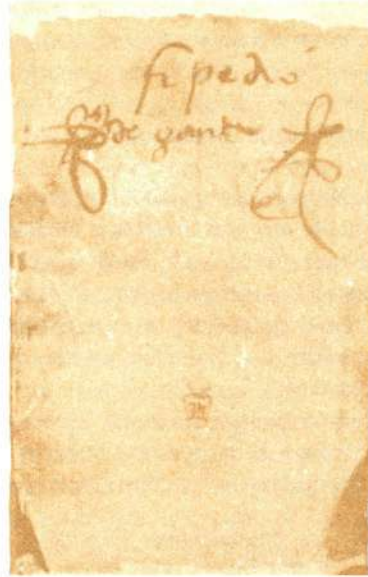 fr pedro
de gante